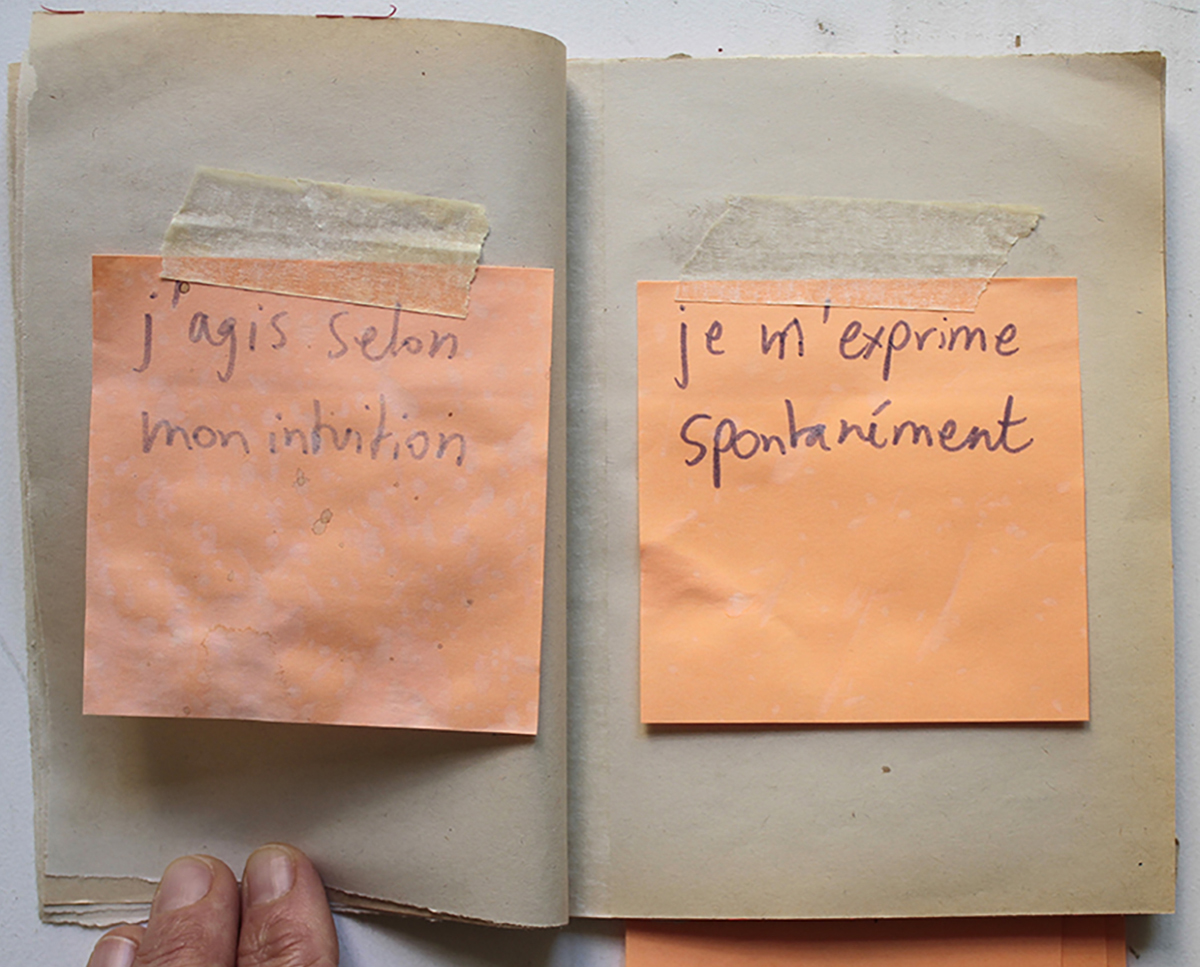 j'agis selon
mon intuition
je m'exprime
spontaniment